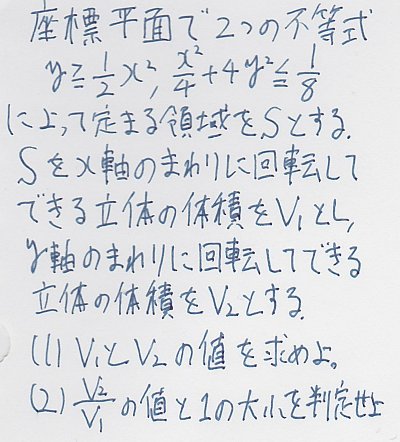 座標平面で2つの不等式
y≧1/2 x², x²/4+4y²≦1/8
によって定まる領域をSとする.
Sをx軸のまわりに回転して
できる立体の体積をV₁とし,
y軸のまわりに回転してできる
立体の体積をV₂とする.
(1) V₁とV₂の値を求めよ。
(2) V₂/V₁の値と1の大小を判定せよ